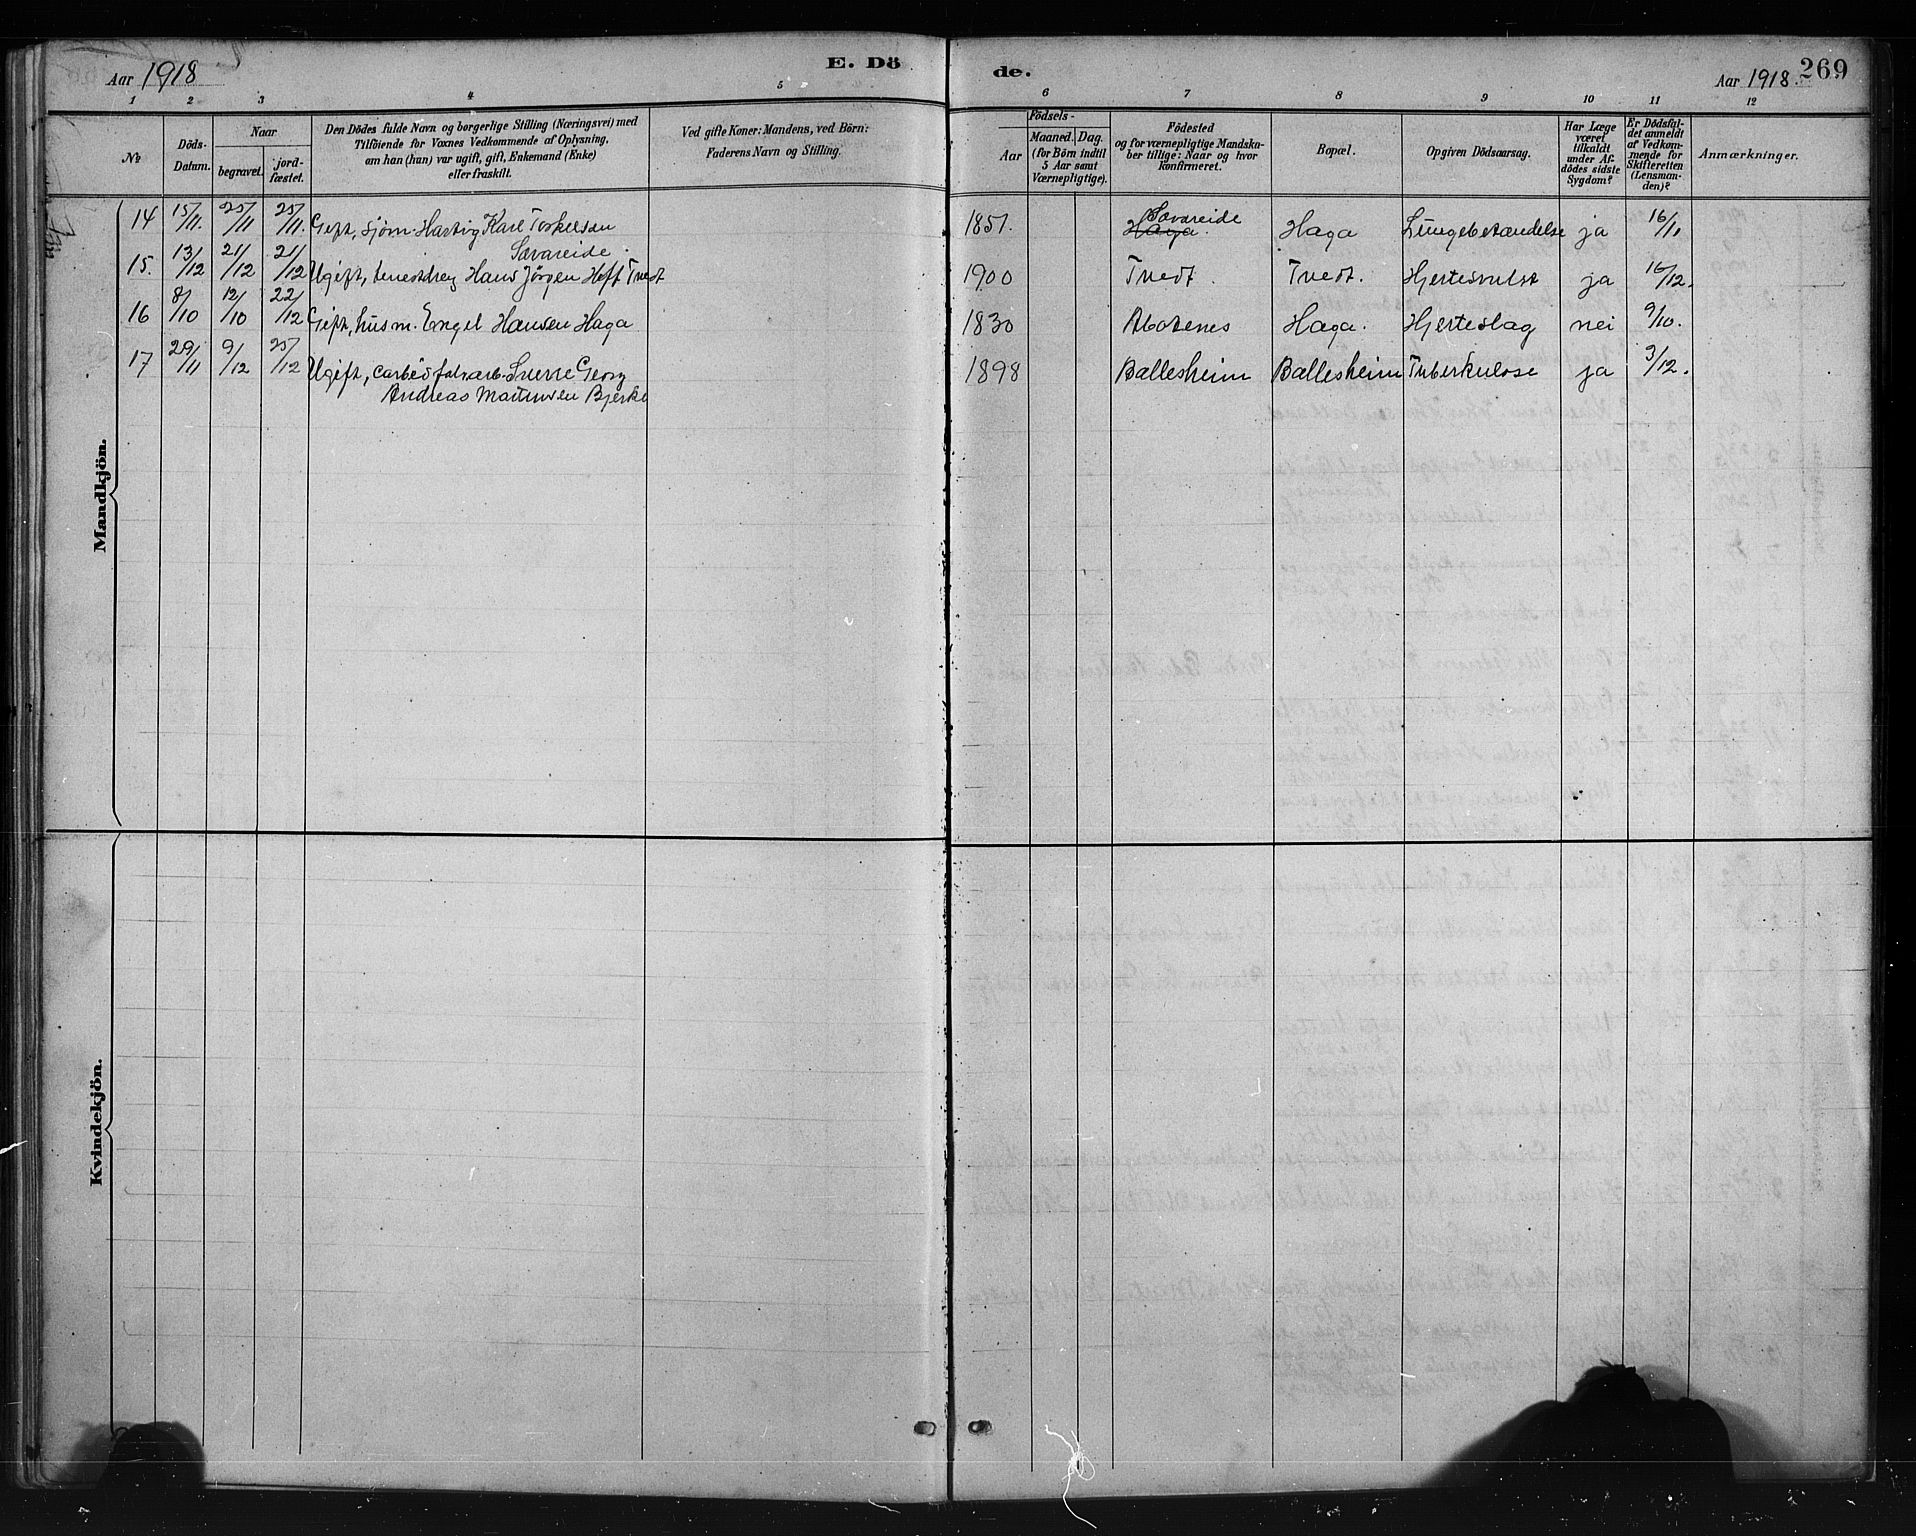 Aar 1918 E. Dö
de. Aar 1918. 269
1 2 3 4 5 6 7 8 9 10 11 12
№
Döds-
Datum.
Naar
begravet.
jord-
fæstet.
Den Dödes fulde Navn og borgerlige Stilling (Næringsvei) med
Tilföiende for Voxnes Vedkommende af Oplysning,
om han (hun) var ugift, gift, Enkemand (Enke)
eller fraskilt.
Ved gifte Koner: Mandens, ved Börn:
Faderens Navn og Stilling.
Födsels-
Aar
Maaned. Dag.
(for Börn indtil
5 Aar samt
Værnepligtige).
Födested
og for værnepligtige Mandska-
ber tillige: Naar og hvor
konfirmeret.
Bopæl.
Opgiven Dödsaarsag.
Har Læge
været
tilkaldt
under Af-
dödes sidste
Sygdom?
Er Dödsfal-
det anmeldt
af Vedkom-
mende for
Skifteretten
(Lensman-
den)?
Anmærkninger.
Mandkjön.
14 15/11. 25/11 25/11. Gift, sjöm. Hartvig Karl Torkelsen
Sævareide.
1851. Sævareide Haga. Haga Lungebetændelse ja 16/11
15. 13/12 21/12 21/12 Ugift, tjenestdreng Hans Jörgen Heft Tvedt
1900 Tvedt. Tvedt. Hjertesvulst ja 16/12.
16 8/10 12/10 22/12 Gift, husm. Engel Hansen Haga
1830 Haga. Hjerteslag nei 9/10.
17 29/11 9/12 25/12 Ugift, carbidfabr.arb. Sverre Georg
Andreas Martinsen Bjerke
1898 Ballesheim Ballesheim Tuberkulose ja 3/12.
Kvindekjön.